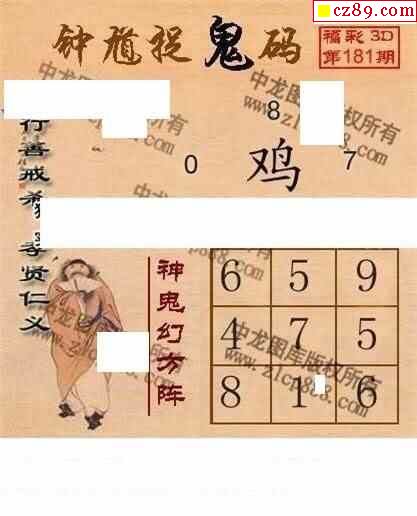 cz89.com
钟馗捉鬼码
福彩3D
第181期
8
0 鸡 7
行善戒杀
孝贤仁义
神鬼幻方阵
6 5 9
4 7 5
8 1 6
中龙图库版权所有
www.zlcp888.com